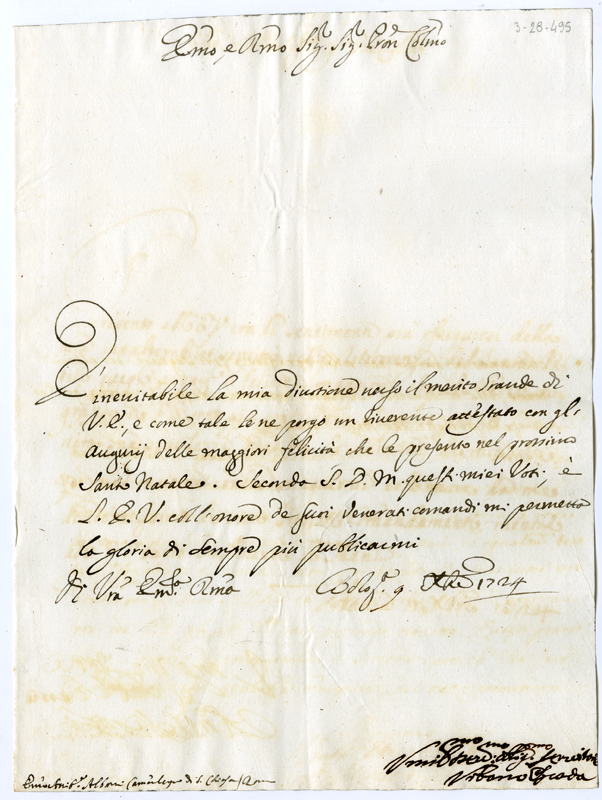 3-28-495
Emo e Rmo Sig.r Sig.r Pron Colmo
È inevitabile la mia divotione verso il merito Grande di
V. E., e come tale le ne porgo un riverente attestato con gl'
Augurij delle maggiori felicità che le presento nel prossimo
Santo Natale. Secondi S. D. M. questi miei Voti, e
L. E. V. coll'onore de suoi venerati comandi mi permetta
la gloria di sempre più publicarmi
di Vra Em.a Rma Bolog.a 9 Xbre 1724
Umilmo Devmo Obligmo Servitore
Urbano
Emo Albani Camerlengo di S. Chiesa / Roma